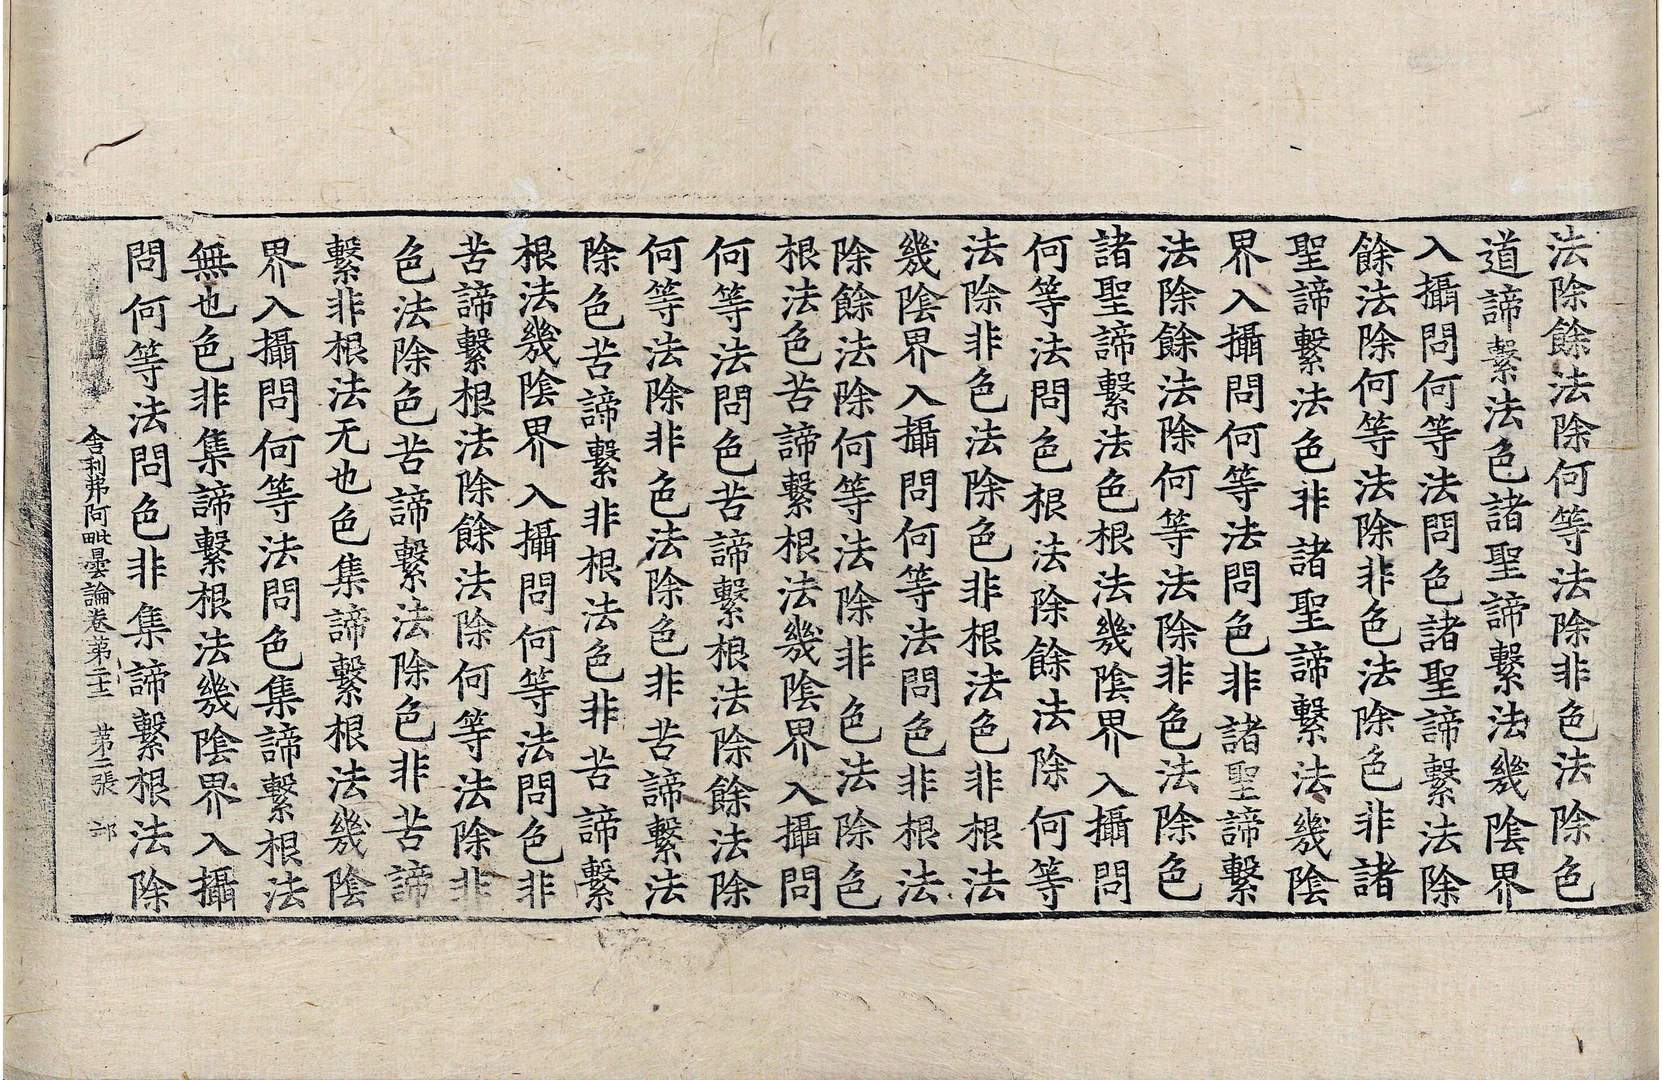 法除餘法除何等法除非色法除色
道諦繫法色諸聖諦繫法幾陰界
入攝問何等法問色諸聖諦繫法除
餘法除何等法除非色法除色非諸
聖諦繫法色非諸聖諦繫法幾陰
界入攝問何等法問色非諸聖諦繫
法除餘法除何等法除非色法除色
諸聖諦繫法色根法幾陰界入攝問
何等法問色根法除餘法除何等
法除非色法除色非根法色非根法
幾陰界入攝問何等法問色非根法
除餘法除何等法除非色法除色
根法色苦諦繫根法幾陰界入攝問
何等法問色苦諦繫根法除餘法除
何等法除非色法除色非苦諦繫法
除色苦諦繫非根法色非苦諦繫
根法幾陰界入攝問何等法問色非
苦諦繫根法除餘法除何等法除非
色法除色苦諦繫法除色非苦諦
繫非根法无也色集諦繫根法幾陰
界入攝問何等法問色集諦繫根法
無也色非集諦繫根法幾陰界入攝
問何等法問色非集諦繫根法除
舍利弗阿毗曇論卷第 苐二張